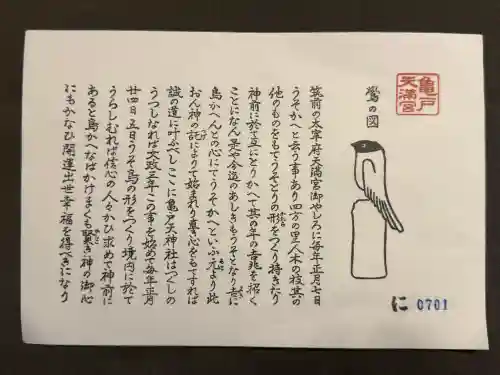 亀戸
天満宮
鷽の図
に 0701
筑前の太宰府天満宮御やしろに毎年正月七日
うそかへと云う事あり四方の里人木の枝其の
他のものをもてうそどりの形をつくり持きたり
神前に於て互にとりかへて其の年の吉兆を招く
ことになん是や今迄のあしきもうそとなり吉に
鳥かへんとの心にてうそかへといふ元より此
おん神の託によりて始まれり尊き心をもてすれば
誠の道に叶ふべしここに亀戸天神社はつくしの
うつしなれば文政三年この事を始めて毎年正月
廿四日五日うそ鳥の形をつくり境内に於て
うらしむれば信心の人々かひ求めて神前に
あると鳥かへなばかけまくも賢き神の御心
にもかなひ開運出世幸福を得べきになり